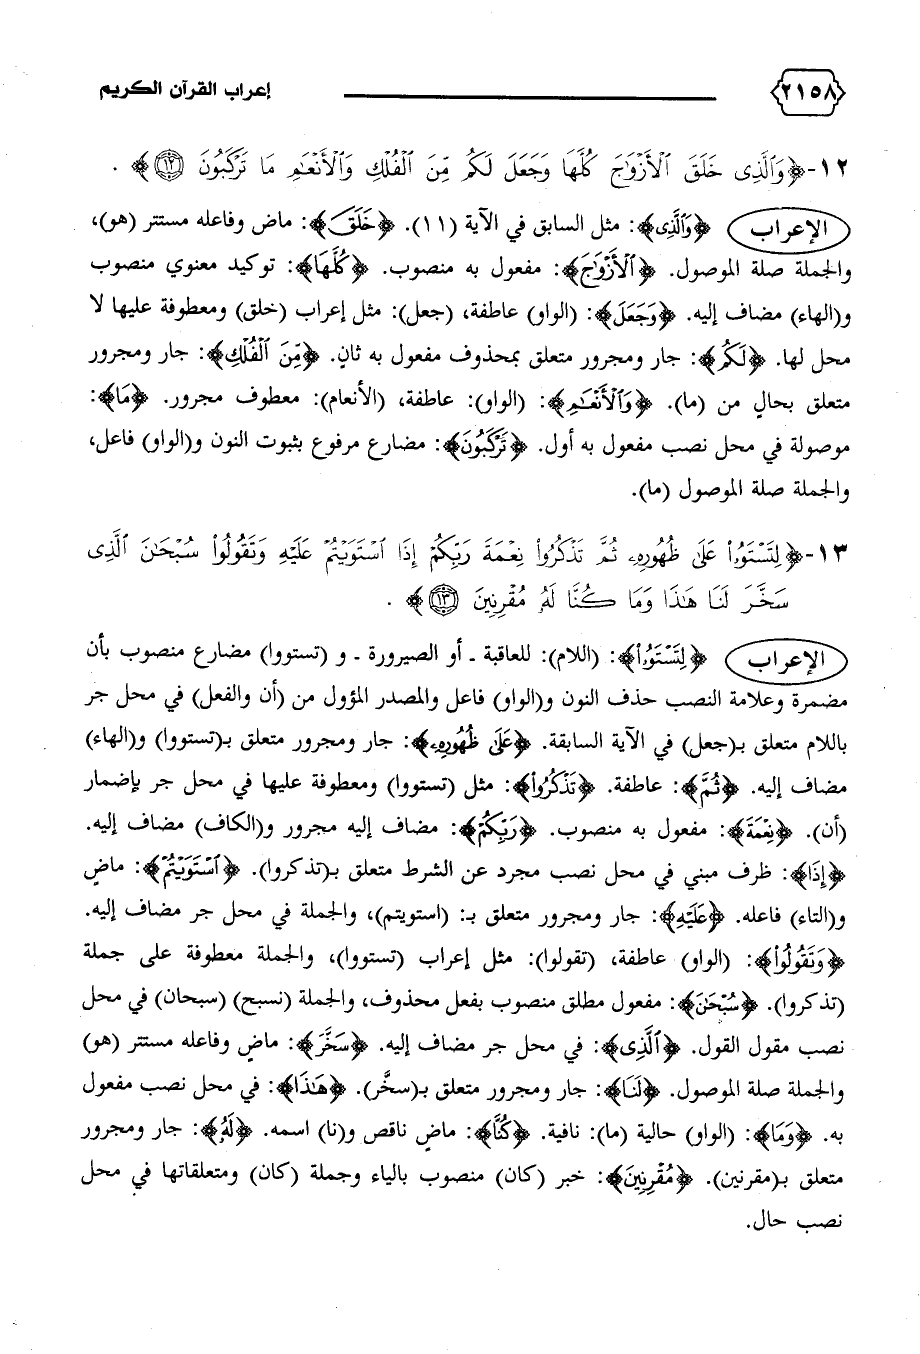 ٢١٥٨ إعراب القرآن الكريم
١٢- ﴿وَٱلَّذِى خَلَقَ ٱلْأَزْوَٰجَ كُلَّهَا وَجَعَلَ لَكُم مِّنَ ٱلْفُلْكِ وَٱلْأَنْعَٰمِ مَا تَرْكَبُونَ ۝١٢﴾ .
الإعراب ﴿وَٱلَّذِى﴾: مثل السابق في الآية (١١). ﴿خَلَقَ﴾: ماض وفاعله مستتر (هو)،
والجملة صلة الموصول. ﴿ٱلْأَزْوَٰجَ﴾: مفعول به منصوب. ﴿كُلَّهَا﴾: توكيد معنوي منصوب
و(الهاء) مضاف إليه. ﴿وَجَعَلَ﴾: (الواو) عاطفة، (جعل): مثل إعراب (خلق) ومعطوفة عليها لا
محل لها. ﴿لَكُم﴾: جار ومجرور متعلق بمحذوف مفعول به ثانٍ. ﴿مِّنَ ٱلْفُلْكِ﴾: جار ومجرور
متعلق بحالٍ من (ما). ﴿وَٱلْأَنْعَٰمِ﴾: (الواو): عاطفة، (الأنعام): معطوف مجرور. ﴿مَا﴾:
موصولة في محل نصب مفعول به أول. ﴿تَرْكَبُونَ﴾: مضارع مرفوع بثبوت النون و(الواو) فاعل،
والجملة صلة الموصول (ما).
١٣- ﴿لِتَسْتَوُۥا۟ عَلَىٰ ظُهُورِهِۦ ثُمَّ تَذْكُرُوا۟ نِعْمَةَ رَبِّكُمْ إِذَا ٱسْتَوَيْتُمْ عَلَيْهِ وَتَقُولُوا۟ سُبْحَٰنَ ٱلَّذِى
سَخَّرَ لَنَا هَٰذَا وَمَا كُنَّا لَهُۥ مُقْرِنِينَ ۝١٣﴾ .
الإعراب ﴿لِتَسْتَوُۥا۟﴾: (اللام): للعاقبة ـ أو الصيرورة ـ و (تستووا) مضارع منصوب بأن
مضمرة وعلامة النصب حذف النون و(الواو) فاعل والمصدر المؤول من (أن والفعل) في محل جر
باللام متعلق بـ(جعل) في الآية السابقة. ﴿عَلَىٰ ظُهُورِهِۦ﴾: جار ومجرور متعلق بـ(تستووا) و(الهاء)
مضاف إليه. ﴿ثُمَّ﴾: عاطفة. ﴿تَذْكُرُوا۟﴾: مثل (تستووا) ومعطوفة عليها في محل جر بإضمار
(أن). ﴿نِعْمَةَ﴾: مفعول به منصوب. ﴿رَبِّكُمْ﴾: مضاف إليه مجرور و(الكاف) مضاف إليه.
﴿إِذَا﴾: ظرف مبني في محل نصب مجرد عن الشرط متعلق بـ(تذكروا). ﴿ٱسْتَوَيْتُمْ﴾: ماضٍ
و(التاء) فاعله. ﴿عَلَيْهِ﴾: جار ومجرور متعلق بـ: (استويتم)، والجملة في محل جر مضاف إليه.
﴿وَتَقُولُوا۟﴾: (الواو) عاطفة، (تقولوا): مثل إعراب (تستووا)، والجملة معطوفة على جملة
(تذكروا). ﴿سُبْحَٰنَ﴾: مفعول مطلق منصوب بفعل محذوف، والجملة (نسبح) (سبحان) في محل
نصب مقول القول. ﴿ٱلَّذِى﴾: في محل جر مضاف إليه. ﴿سَخَّرَ﴾: ماضٍ وفاعله مستتر (هو)
والجملة صلة الموصول. ﴿لَنَا﴾: جار ومجرور متعلق بـ(سخَّر). ﴿هَٰذَا﴾: في محل نصب مفعول
به. ﴿وَمَا﴾: (الواو) حالية (ما): نافية. ﴿كُنَّا﴾: ماضٍ ناقص و(نا) اسمه. ﴿لَهُۥ﴾: جار ومجرور
متعلق بـ(مقرنين). ﴿مُقْرِنِينَ﴾: خبر (كان) منصوب بالياء وجملة (كان) ومتعلقاتها في محل
نصب حال.